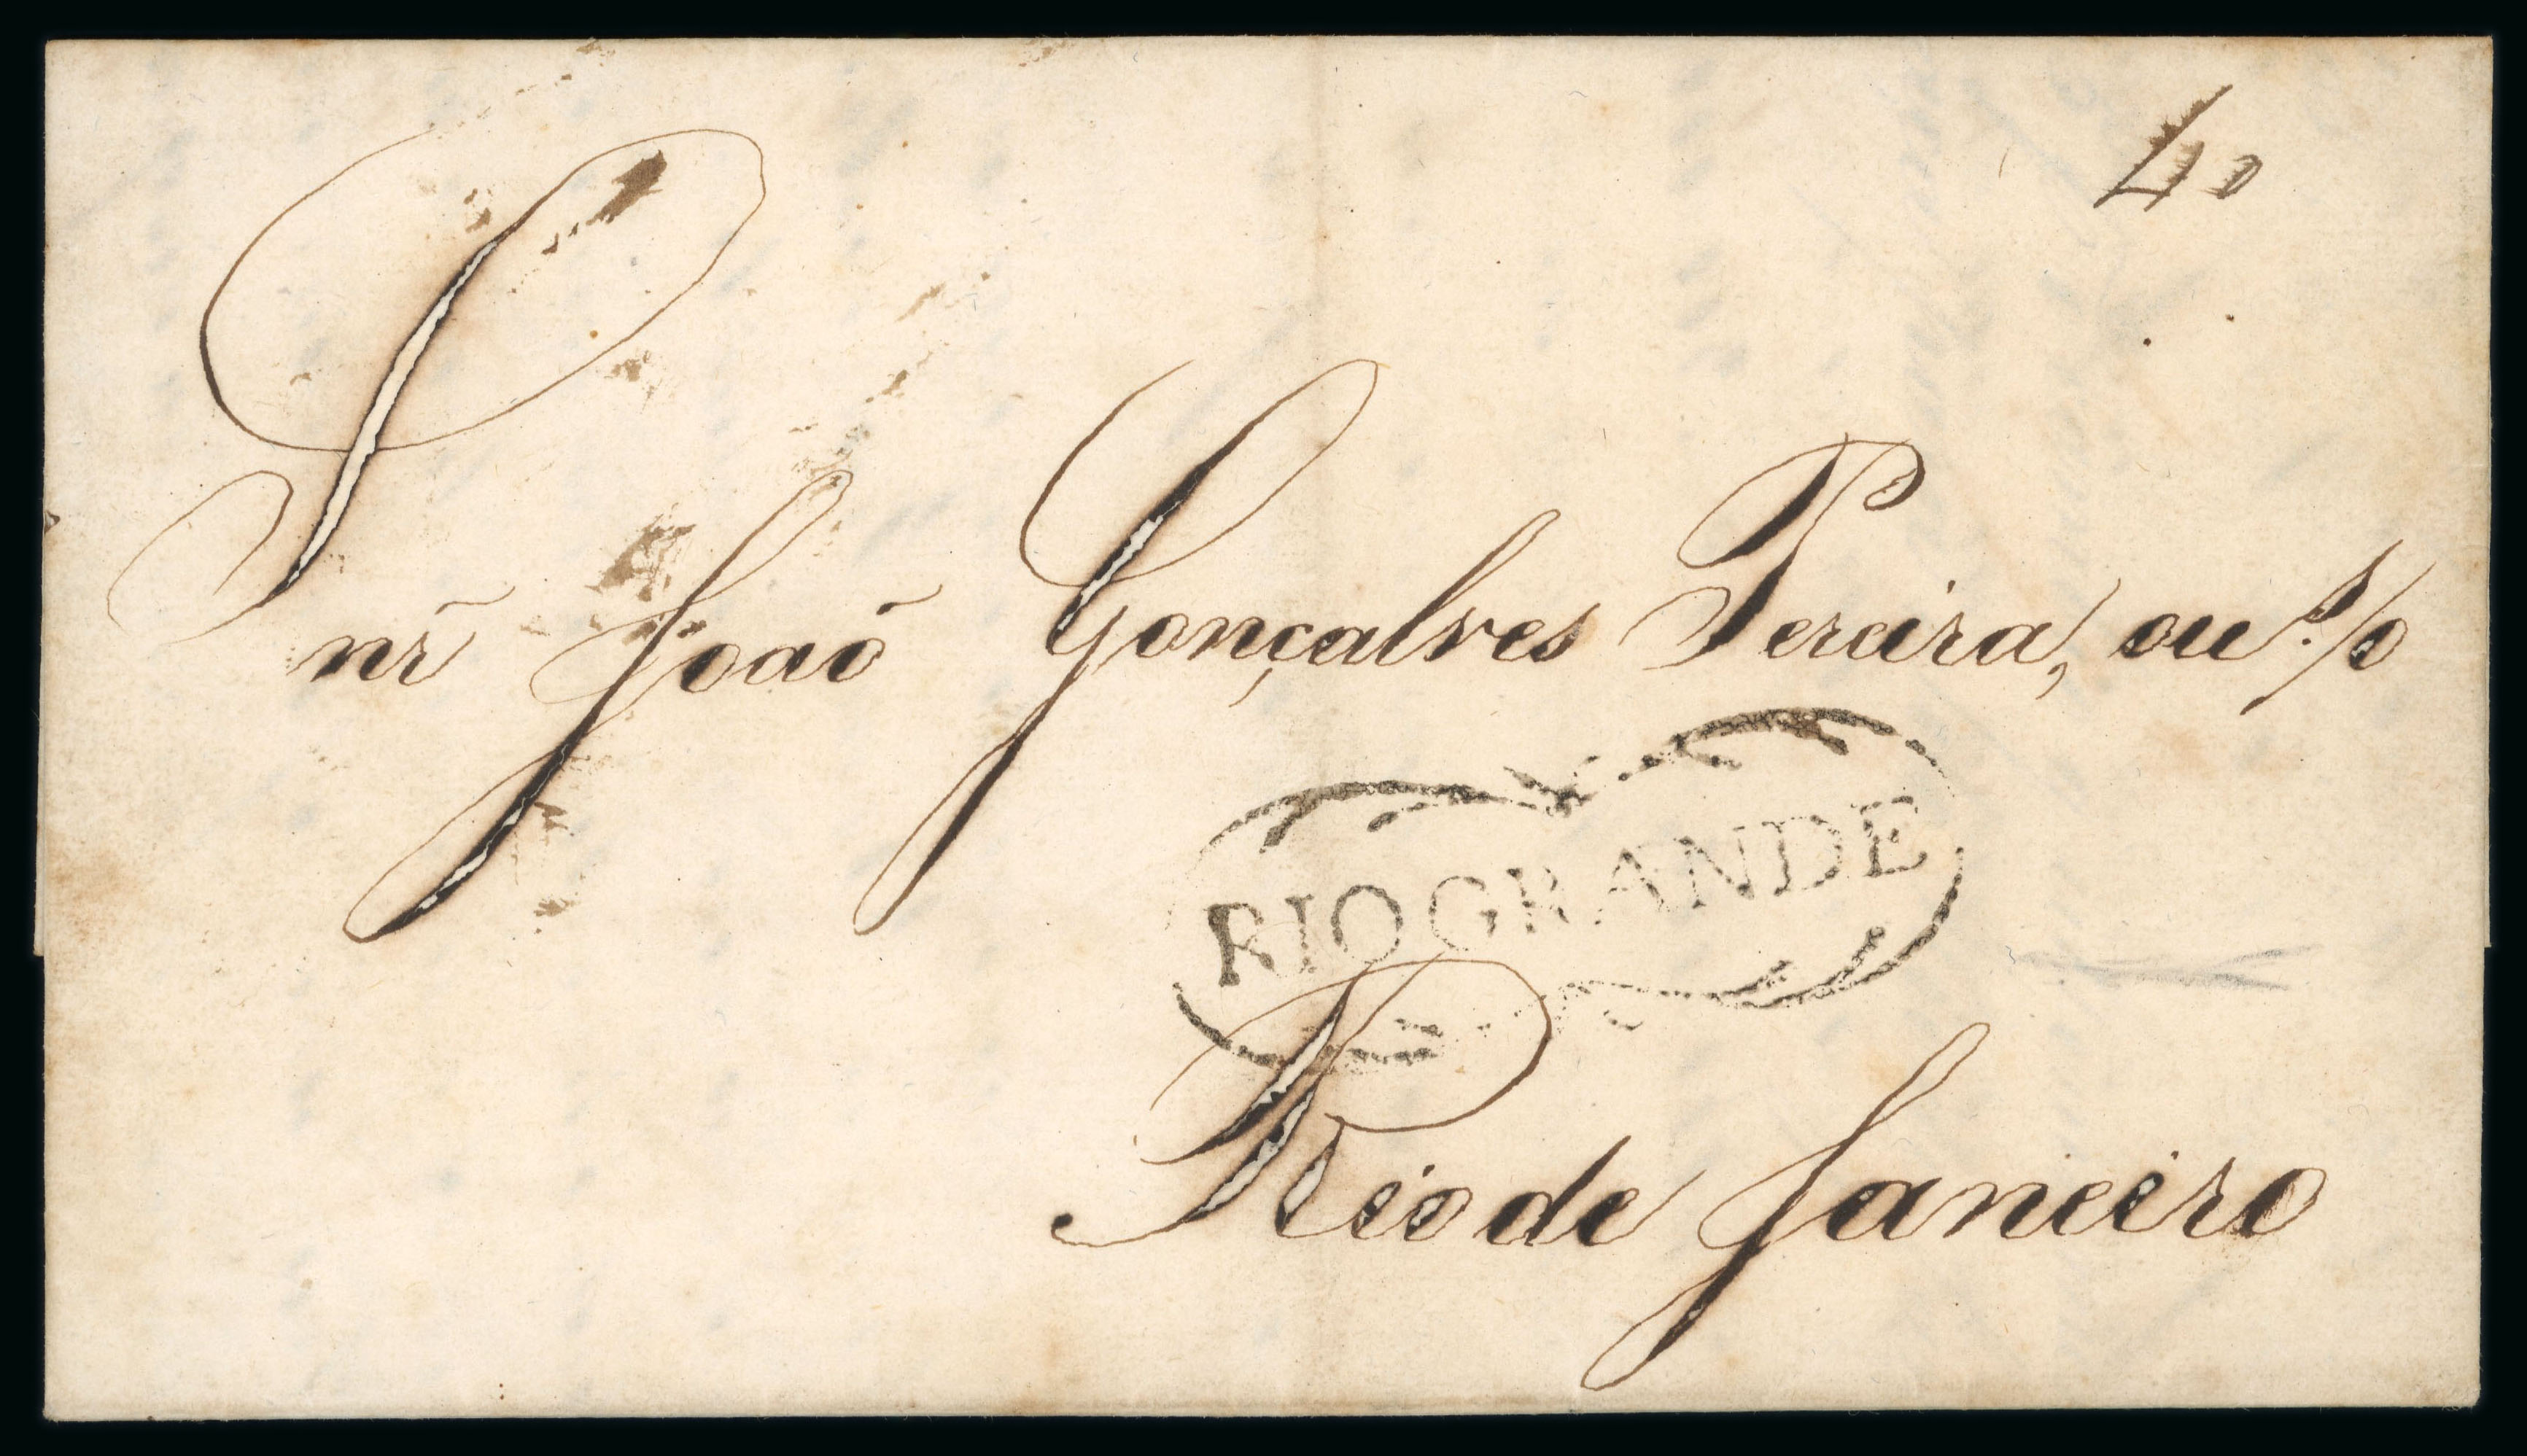 40
Snr̃ Joaõ Gonçalves Pereira, ou
RIO GRANDE
Rio de Janeiro